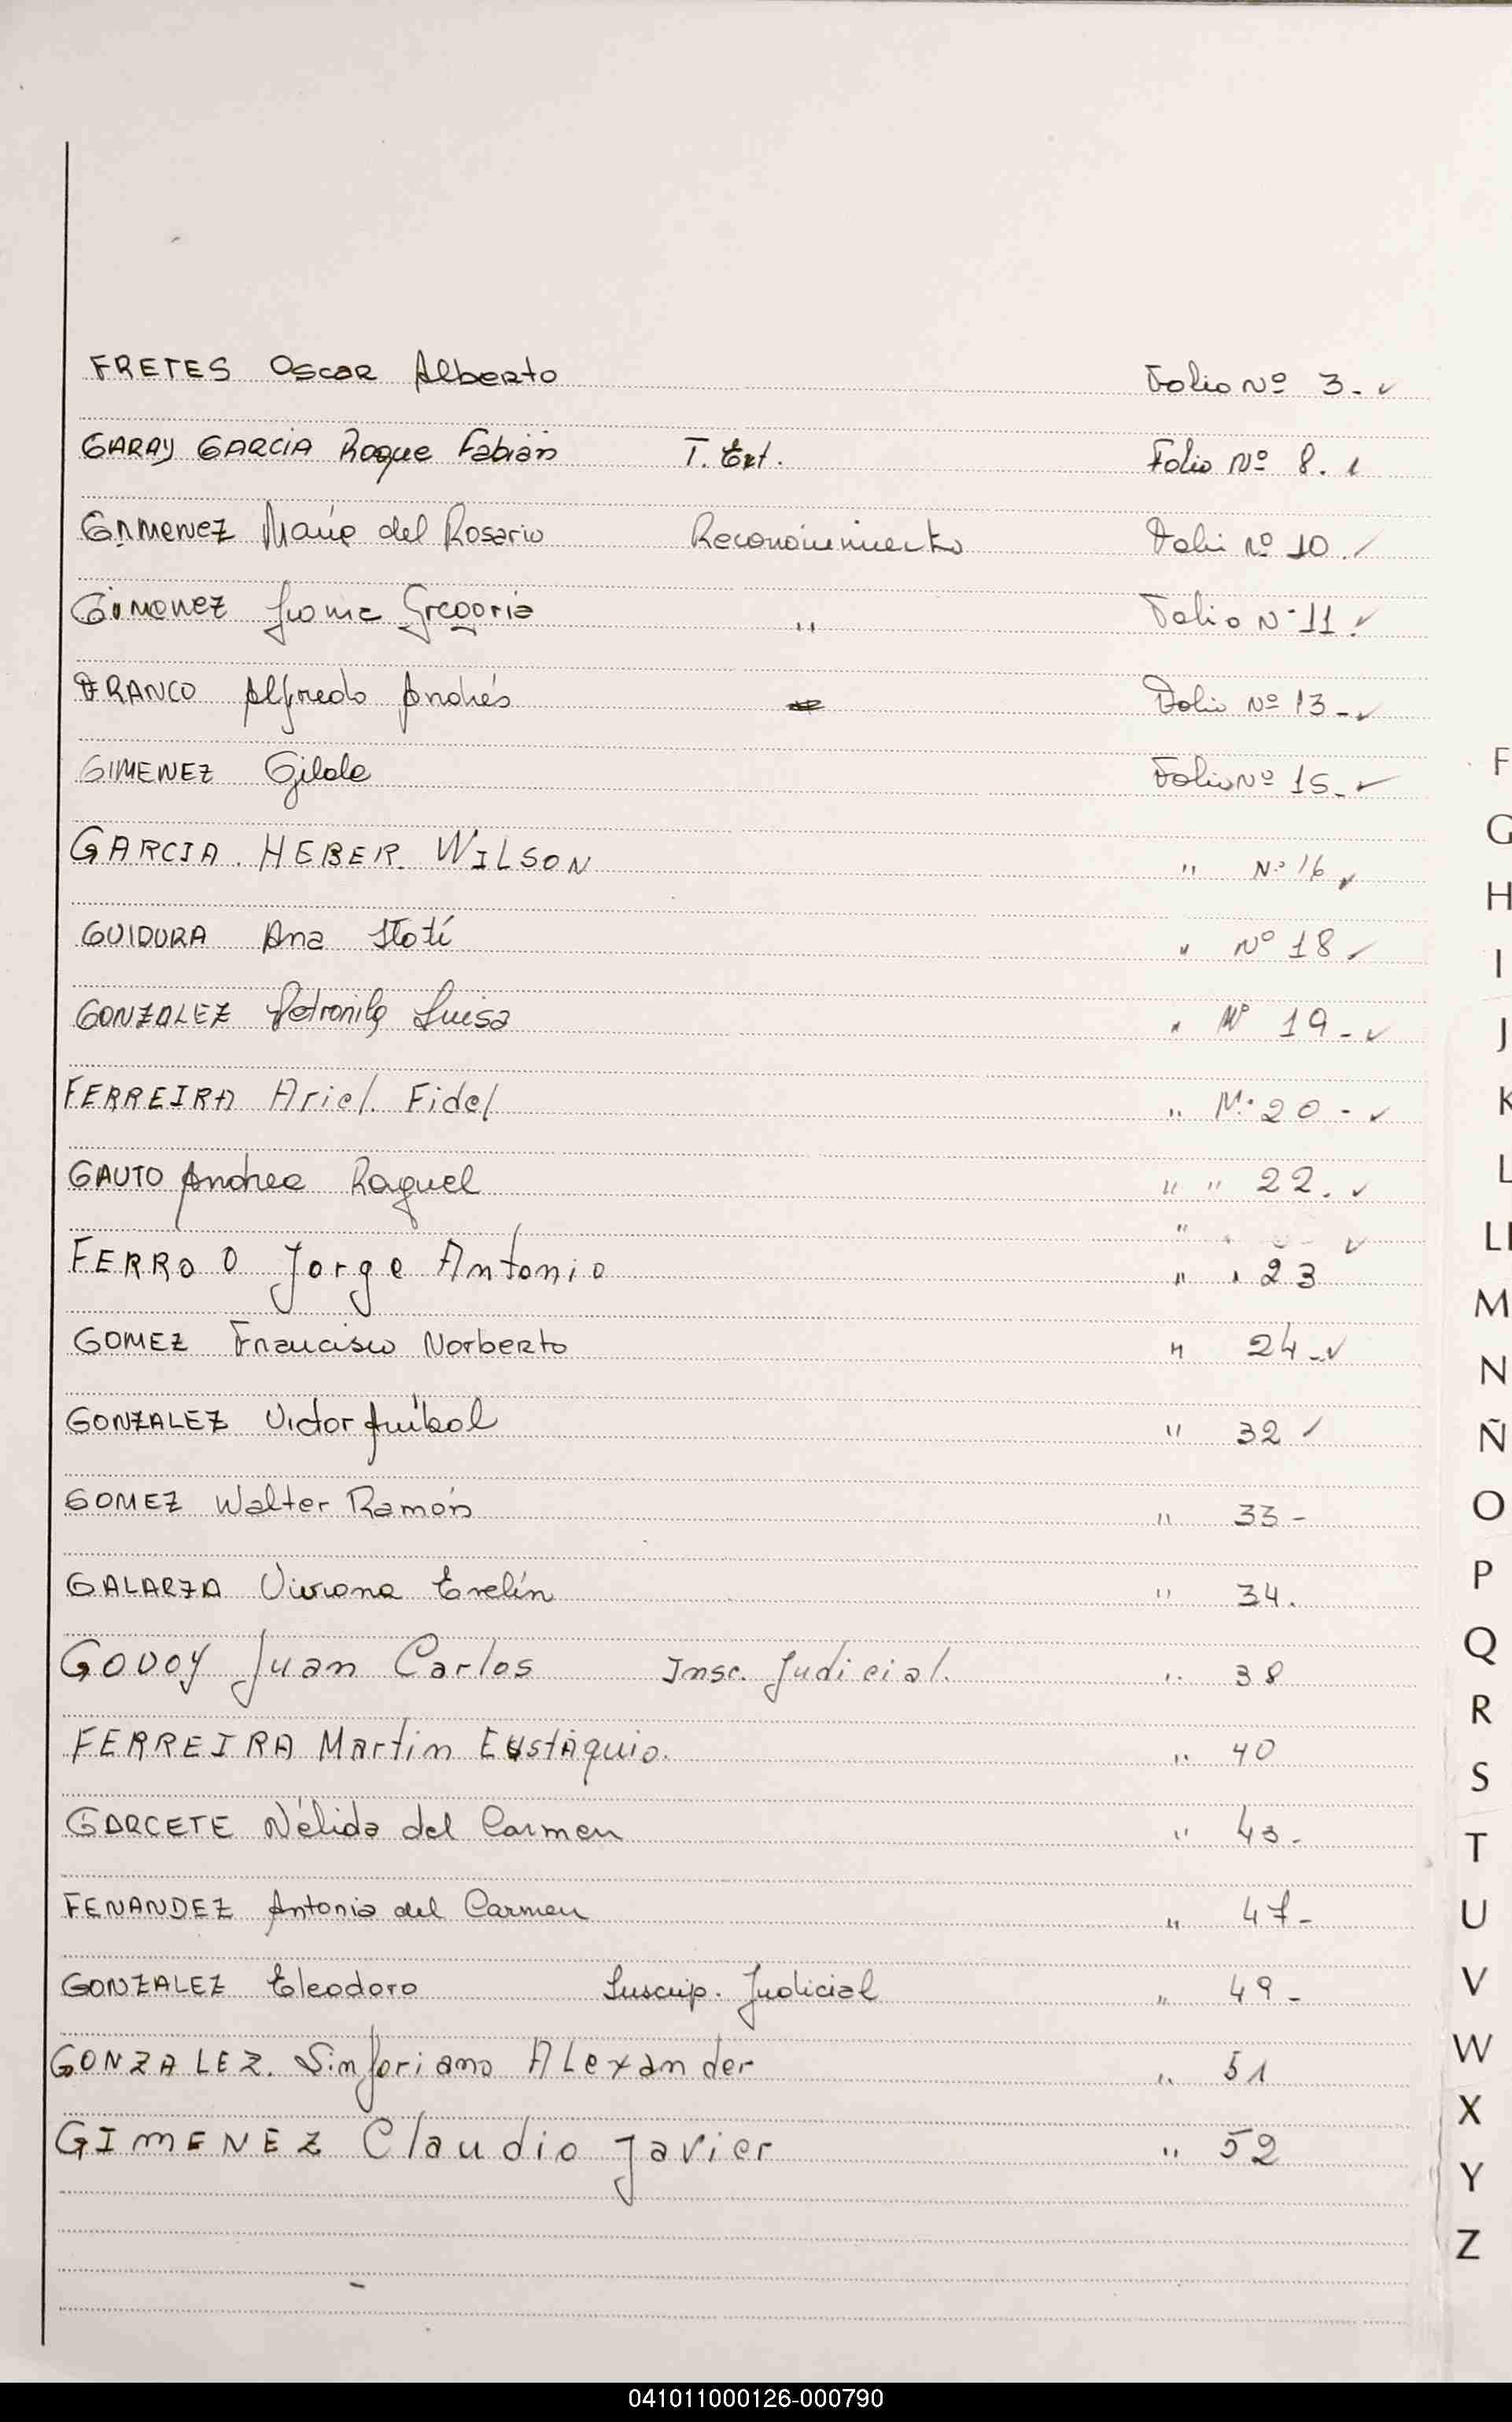 FRETES Oscar Alberto Folio Nº 3. ✓
GARAY GARCIA Roque Fabián T. Ext. Folio Nº 8.
GIMENEZ María del Rosario Reconocimiento Folio Nº 10. ✓
GIMENEZ Gregoria " Folio Nº 11. ✓
FRANCO Alfredo Andrés Folio Nº 13 - ✓
GIMENEZ Gilda Folio Nº 15. ✓
GARCIA. HEBER. WILSON " Nº 16 ✓
GUIDURA Ana Itatí " Nº 18 ✓
GONZALEZ Petronila Luisa " Nº 19 - ✓
FERREIRA Ariel. Fidel " Nº 20 - ✓
GAUTO Andrea Raquel " " 22. ✓
FERRO O Jorge Antonio " " 23 ✓
GOMEZ Francisco Norberto " 24 - ✓
GONZALEZ Victor Aníbal " 32 ✓
GOMEZ Walter Ramón " 33 -
GALARZA Viviana Evelín " 34.
GODOY Juan Carlos Insc. Judicial. " 38
FERREIRA Martin Eustáquio. " 40
GARCETE Nélida del Carmen " 43 -
FENANDEZ Antonia del Carmen " 47 -
GONZALEZ Eleodoro Inscrip. Judicial " 49 -
GONZALEZ. Sinforiano Alexander " 51
GIMENEZ Claudio Javier " 52
F
G
H
I
J
K
L
Ll
M
N
Ñ
O
P
Q
R
S
T
U
V
W
X
Y
Z
041011000126-000790